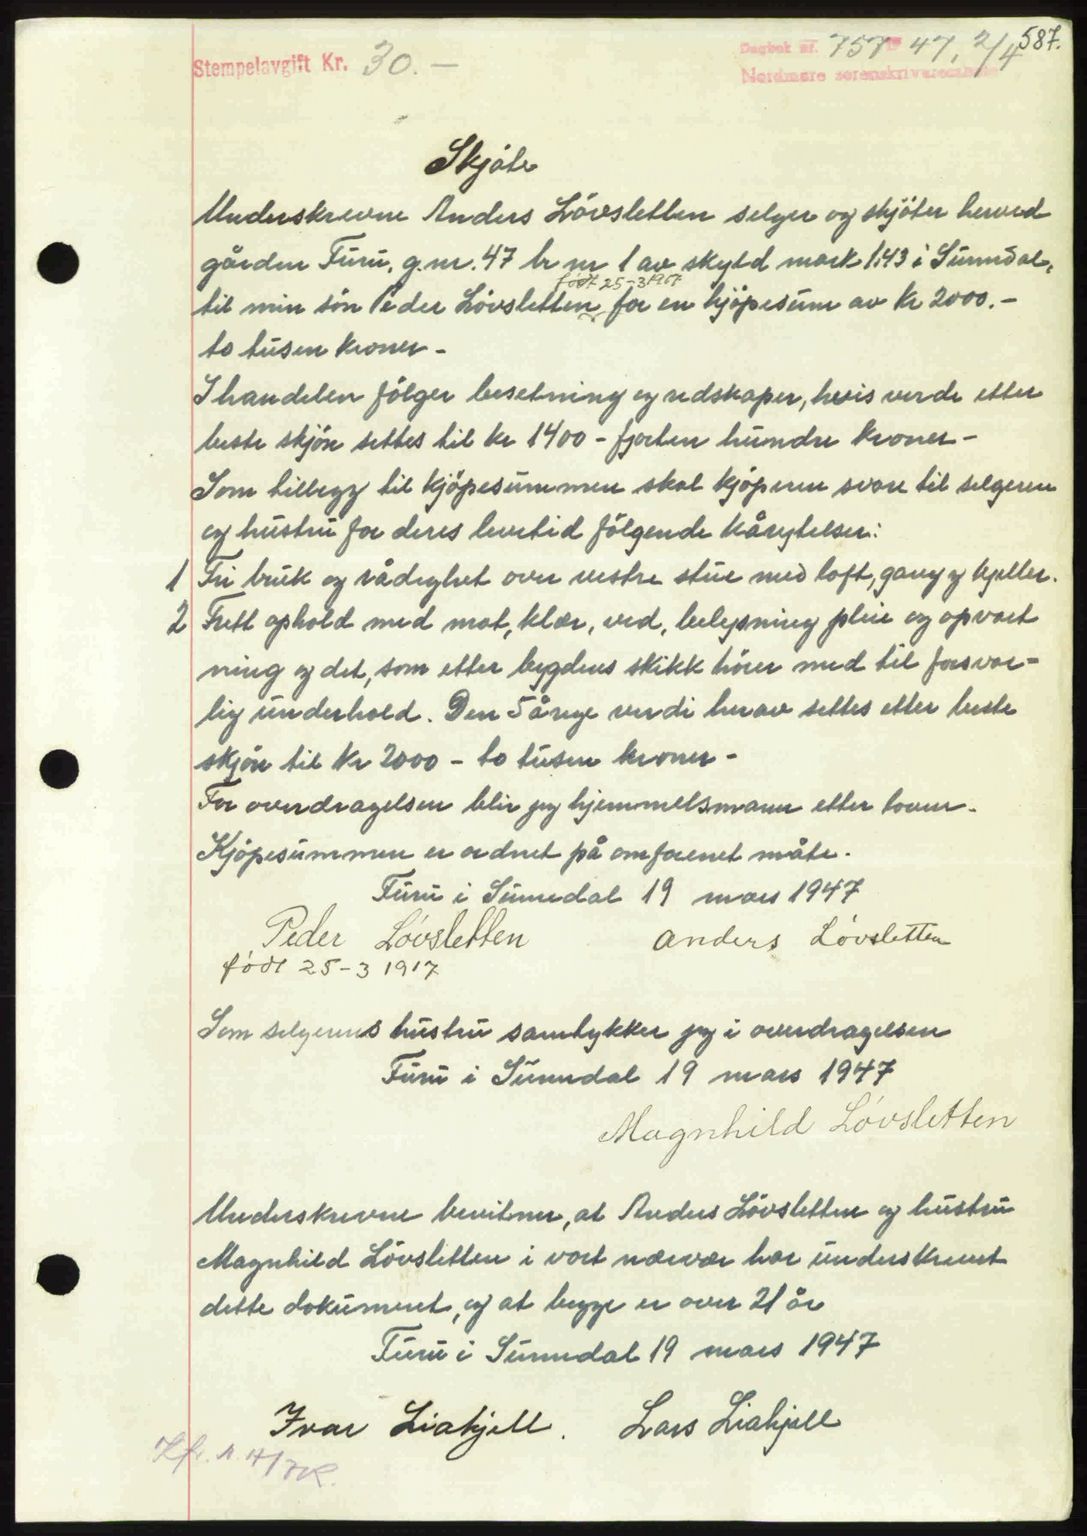 587.
Stempelavgift Kr. 30.—
Dagbok nr. 757 47, 2/4
Nordmøre sorenskriverembete
Skjöte
Underskrevne Anders Lövsletten selger og skjöter herved
gården Furu, g.nr. 47 br nr 1 av skyld mark 1.43 i Sunndal,
født 25-3 1917
til min sön Peder Lövsletten for en kjöpesum av Kr 2000.-
to tusen kroner -
I handelen fölger besetning og redskaper, hvis verdi etter
beste skjön settes til kr 1400 - fjorten hundre kroner -
Som tillegg til kjöpesummen skal kjöperen svare til selgeren
og hustru for deres levetid fölgende kårytelser:
1 Fri bruk og rådighet over vestre stue med loft, gang og kjeller.
2 Fritt ophold med mat, klær, ved, belysning pleie og opvart
ning og det, som etter bygdens skikk hörer med til forsvar=
lig underhold. Den 5 årige verdi herav settes etter beste
skjön til Kr 2000 - to tusen kroner -
For overdragelsen blir jeg hjemmelsmann etter loven.
Kjöpesummen er ordnet på omforenet måte.
Furu i Sunndal 19 mars 1947
Peder Lövsletten Anders Lövsletten
født 25-3 1917
Som selgerens hustru samtykker jeg i overdragelsen
Furu i Sunndal 19 mars 1947
Magnhild Lövsletten
Underskrevne bevitner, at Anders Lövsletten og hustru
Magnhild Lövsletten i vort nærvær har underskrevet
dette dokument, og at begge er over 21 år
Furu i Sunndal 19 mars 1947
Ivar Liahjell. Lars Liahjell